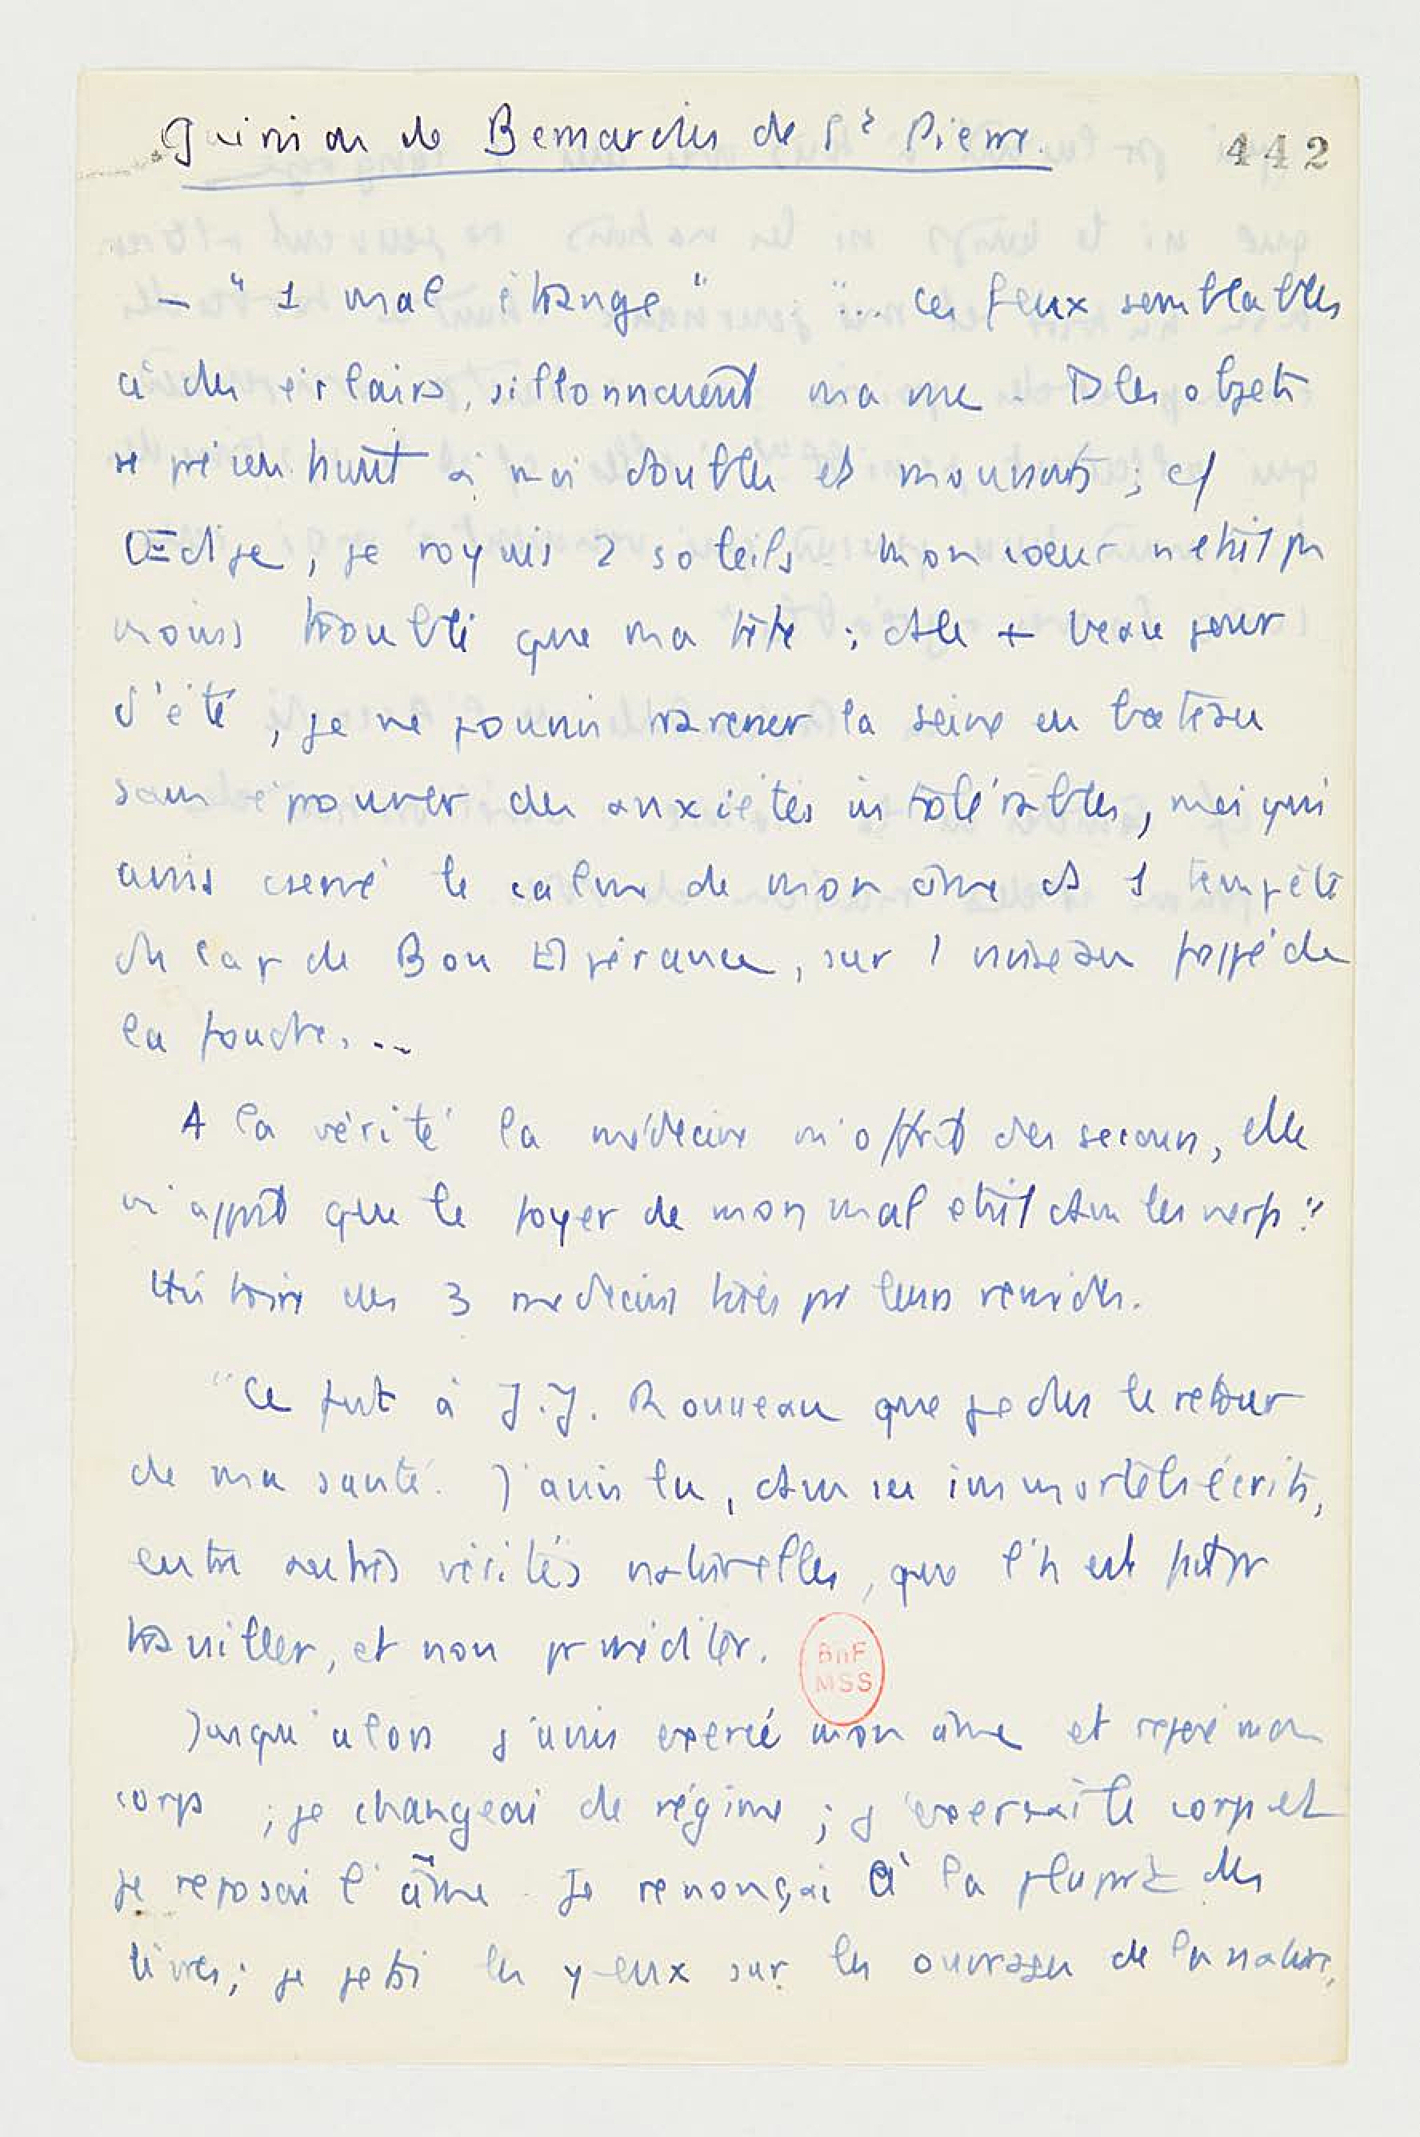 Guérison de Bernardin de St Pierre.
442
- " 1 mal étrange " "... des feux semblables
à des éclairs, sillonnaient ma vue. Ts les objets
se présentaient à moi doubles et mouvants ; cf
Œdipe, je voyais 2 soleils mon cœur n'était pas
moins troublé que ma tête ; ds le + beau jour
d'été, je ne pouvais traverser la Seine en bateau
sans éprouver des anxiétés intolérables, moi qui
avais cservé le calme de mon âme ds 1 tempête
du Cap de Bon Espérance, sur 1 vaisseau frappé de
la foudre. ..
A la vérité la médecine m'offrit des secours, elle
m'apprit que le foyer de mon mal était dans les nerfs "
Histoire des 3 médecins tués par leurs remèdes.
"Ce fut à J.J. Rousseau que je dus le retour
de ma santé. J'avais lu, dans ses immortels écrits,
entre autres vérités naturelles, que l'h est fait pr
travailler, et non pr méditer.
BnF
MSS
Jusqu'alors j'avais exercé mon âme et reposé mon
corps ; je changeai de régime ; j'exerçai le corps et
je reposai l'âme. Je renonçai à la plupart des
livres ; je jetai les yeux sur les ouvrages de la nature,